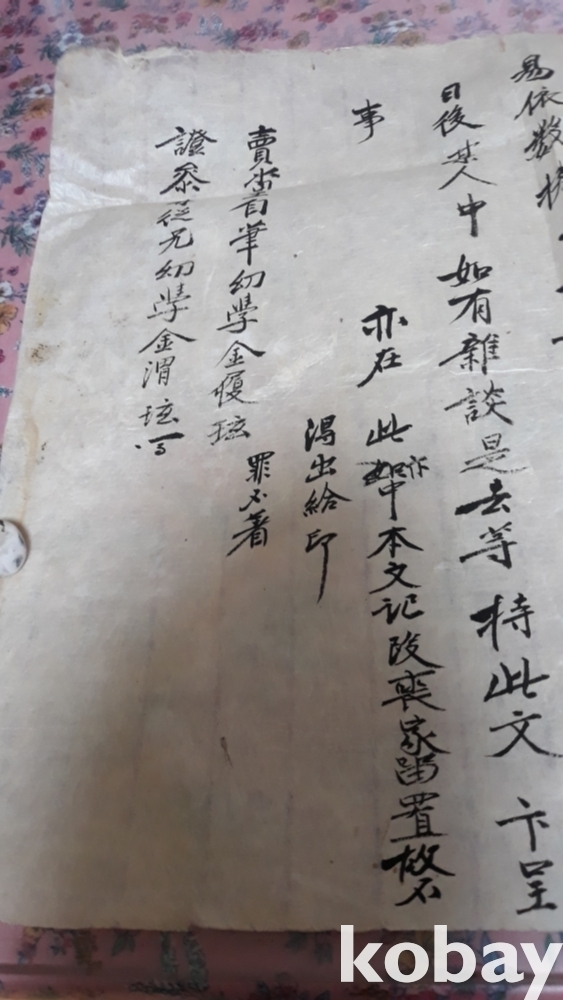 易依數捧
日後某人中如有雜談是去等持此文卞呈
事
亦在此中卞本文記段喪家留置故不
得出給印
賣畓筆幼學金履玹
罪不著
證參從兄幼學金渭玹
kobay